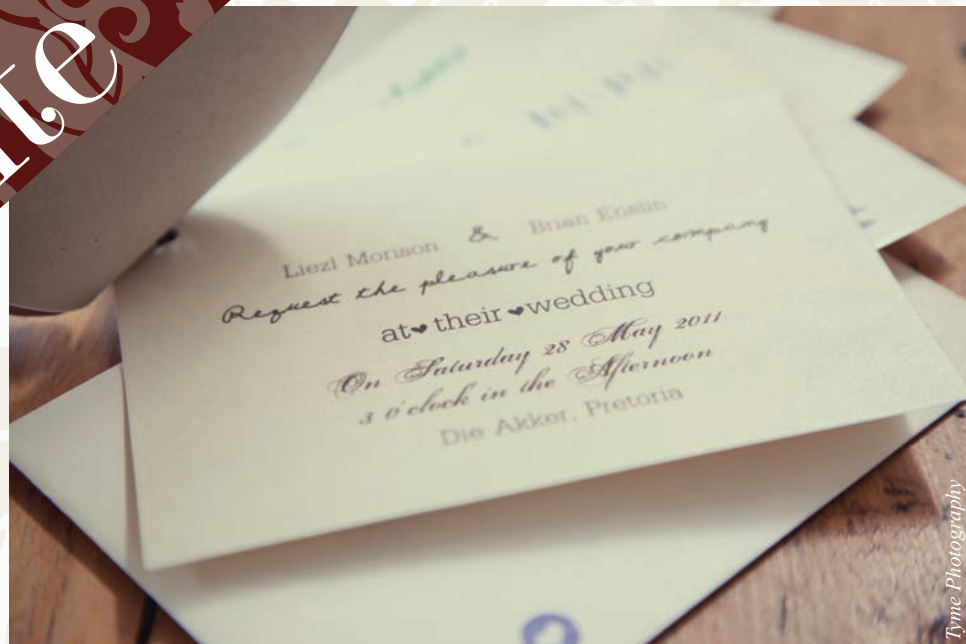 Liezl Morison & Brian Enslin
Request the pleasure of your company
at♥their♥wedding
On Saturday 28 May 2011
3 o'clock in the Afternoon
Die Akker, Pretoria
Tyme Photography